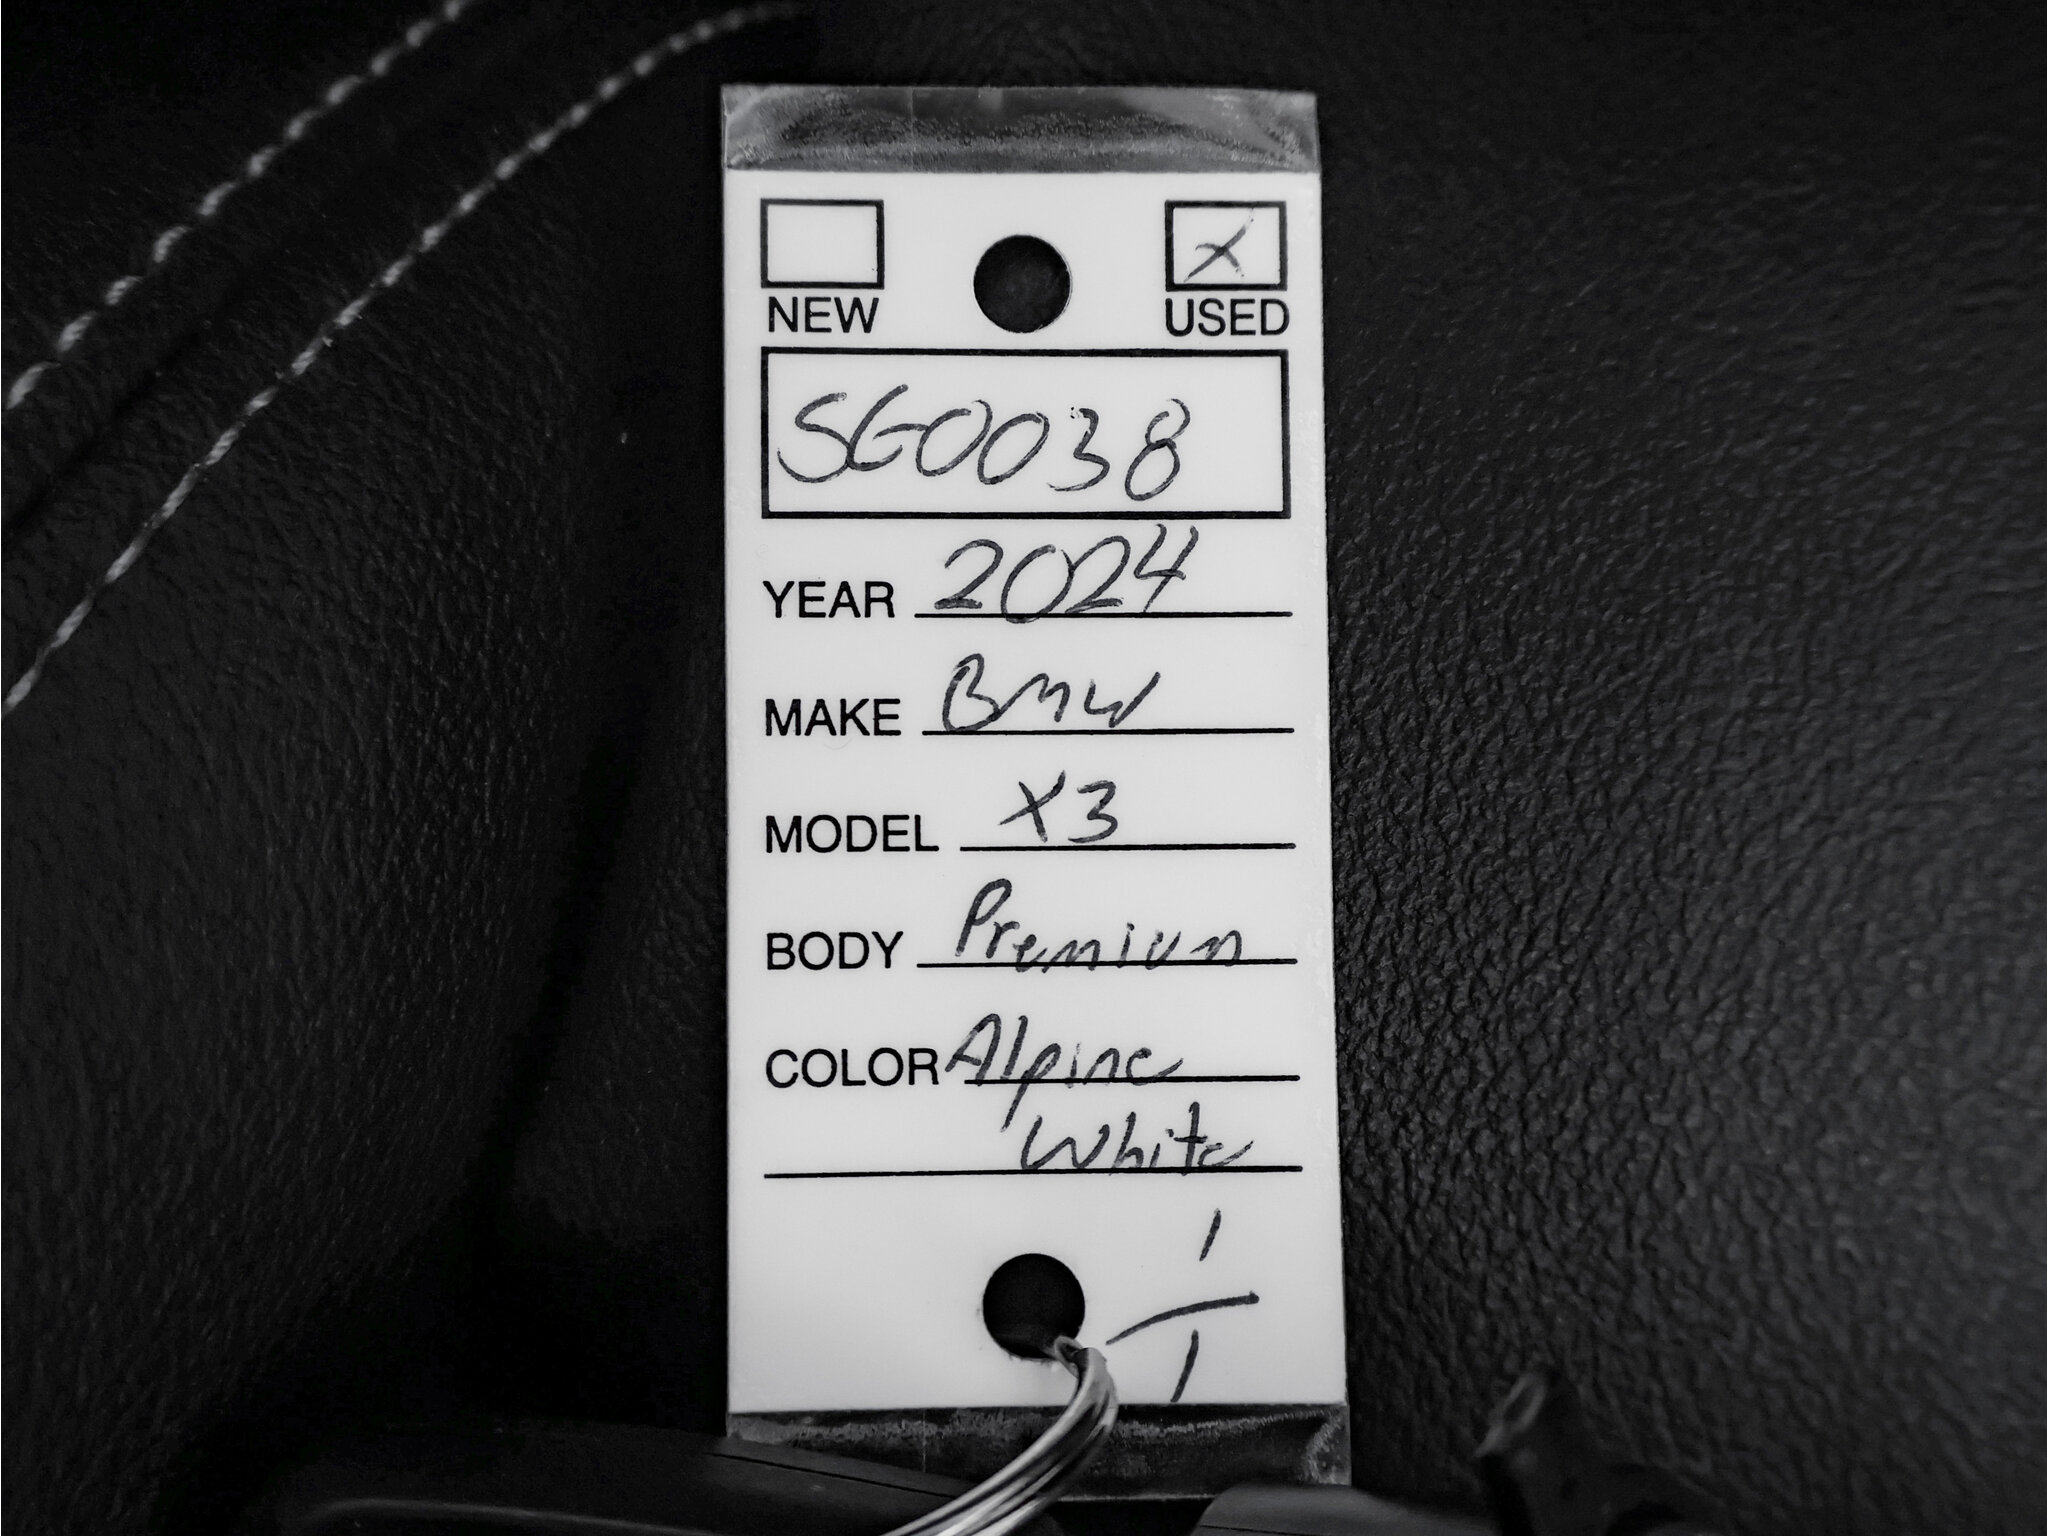 NEW USED
SG0038
YEAR 2024
MAKE BMW
MODEL X3
BODY Premium
COLOR Alpine
White
1
1